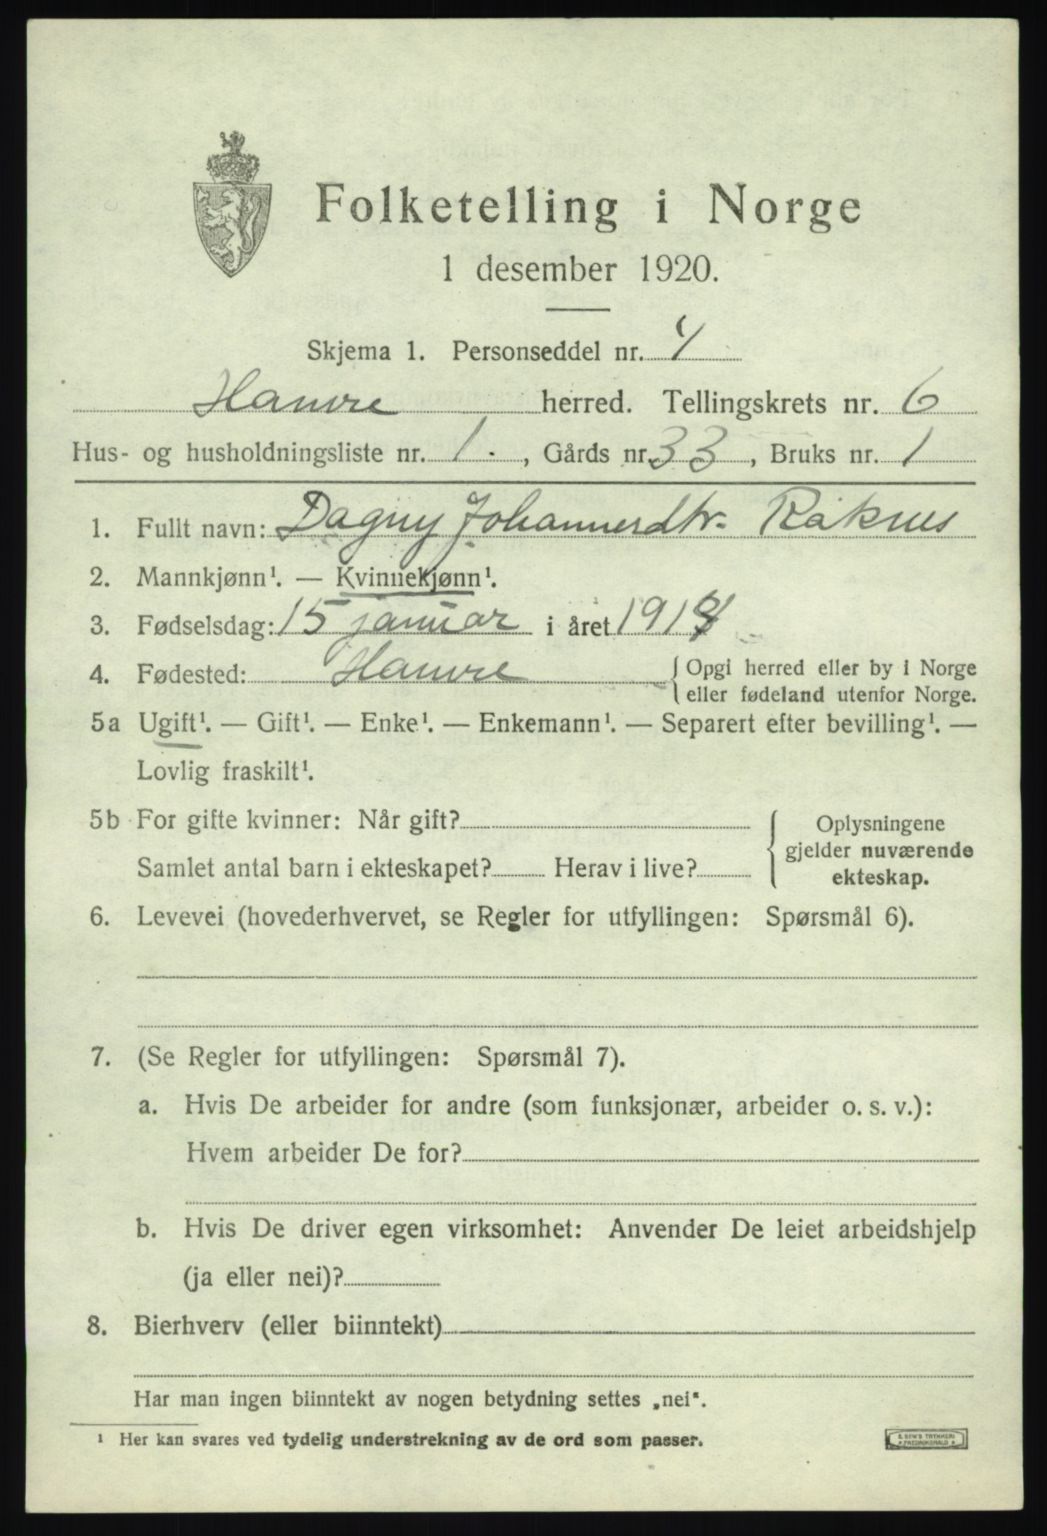 Folketelling i Norge
1 desember 1920.
Skjema 1. Personseddel nr. 4
Hamre herred. Tellingskrets nr. 6
Hus- og husholdningsliste nr. 1. , Gårds nr. 33, Bruks nr. 1
1. Fullt navn: Dagny Johannesdtr. Raknes
2. Mannkjønn¹. — Kvinnekjønn¹.
3. Fødselsdag: 15 januar i året
4. Fødested: Hamre { Opgi herred eller by i Norge
eller fødeland utenfor Norge.
5a Ugift¹. — Gift¹. — Enke¹. — Enkemann¹. — Separert efter bevilling¹. —
Lovlig fraskilt¹.
5b For gifte kvinner: Når gift?
Samlet antal barn i ekteskapet? Herav i live?
{ Oplysningene
gjelder nuværende
ekteskap.
6. Levevei (hovederhvervet, se Regler for utfyllingen: Spørsmål 6).
7. (Se Regler for utfyllingen: Spørsmål 7).
a. Hvis De arbeider for andre (som funksjonær, arbeider o. s. v.):
Hvem arbeider De for?
b. Hvis De driver egen virksomhet: Anvender De leiet arbeidshjelp
(ja eller nei)?
8. Bierhverv (eller biinntekt)
Har man ingen biinntekt av nogen betydning settes „nei“.
¹ Her kan svares ved tydelig understrekning av de ord som passer.